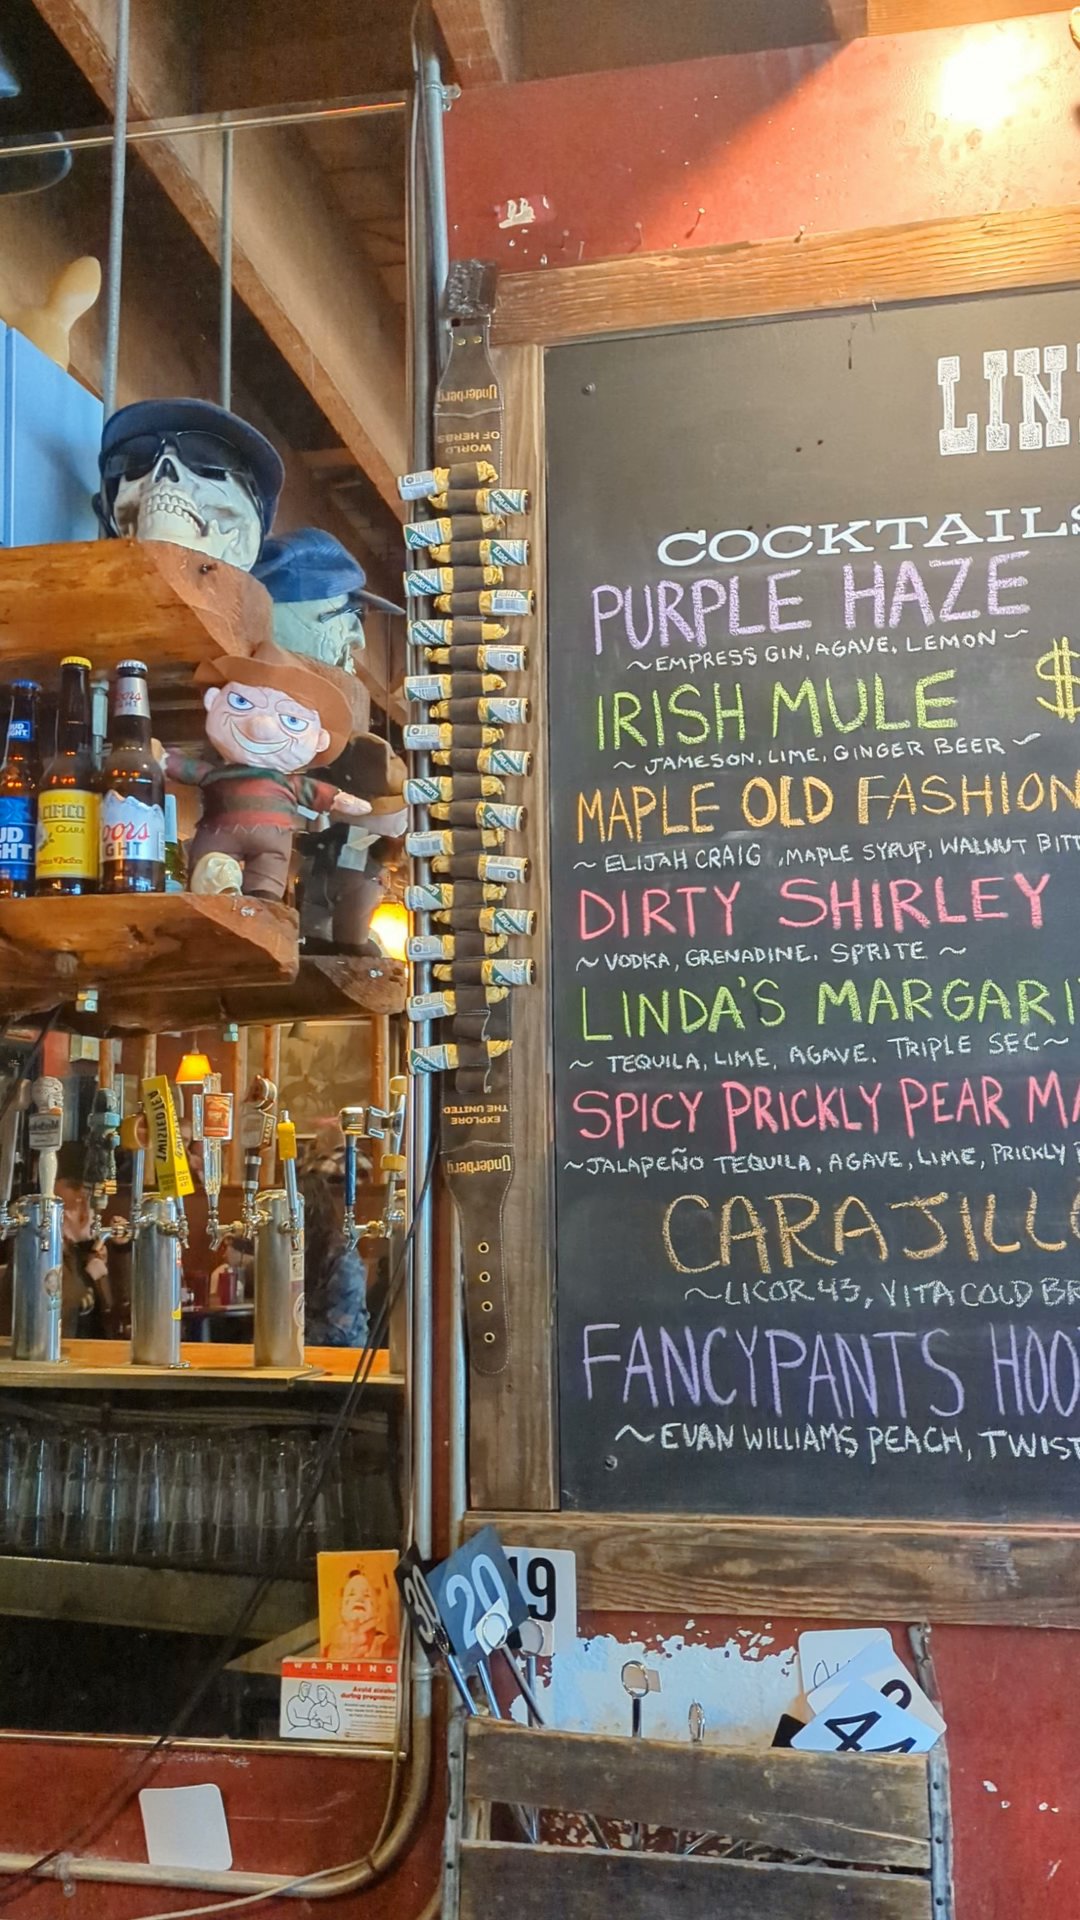 LIN
COCKTAILS
PURPLE HAZE
~EMPRESS GIN, AGAVE, LEMON~
IRISH MULE $
~ JAMESON, LIME, GINGER BEER ~
MAPLE OLD FASHION
~ ELIJAH CRAIG, MAPLE SYRUP, WALNUT BITT
DIRTY SHIRLEY
~ VODKA, GRENADINE, SPRITE ~
LINDA'S MARGARI
~ TEQUILA, LIME, AGAVE, TRIPLE SEC~
SPICY PRICKLY PEAR MA
~JALAPEÑO TEQUILA, AGAVE, LIME, PRICKLY
CARAJILLO
~LICOR 43, VITA COLD BR
FANCYPANTS HOO
~EVAN WILLIAMS PEACH, TWIST
Underberg
WORLD
OF HERBS
EXPLORE
THE UNITED
Underberg
BUD
LIGHT
CLARA
Coors
LIGHT
TWISTED TEA
30
20
19
4
WARNING
Avoid alcohol
during pregnancy